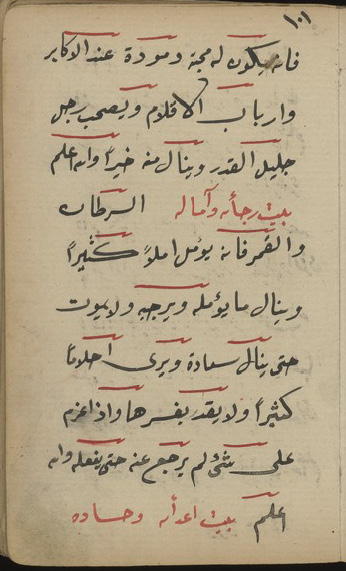 ١٠١
فانه يكون له محبة ومودة عند الاكابر
وارباب الاقلام ويصحب رجل
جليل القدر وينال منه خيراً والله اعلم
بيت رجأه وآماله السرطان
والقمر فانه يؤمل املاً كثيراً
وينال ما يؤمله ويرجيه ولا يموت
حتى ينال سعادة ويرى احلاما
كثيراً ولا يقدر يفسرها واذا عزم
على شئ لم يرجع عنه حتى يفعله والله
اعلم بيت اعدأه وحساده